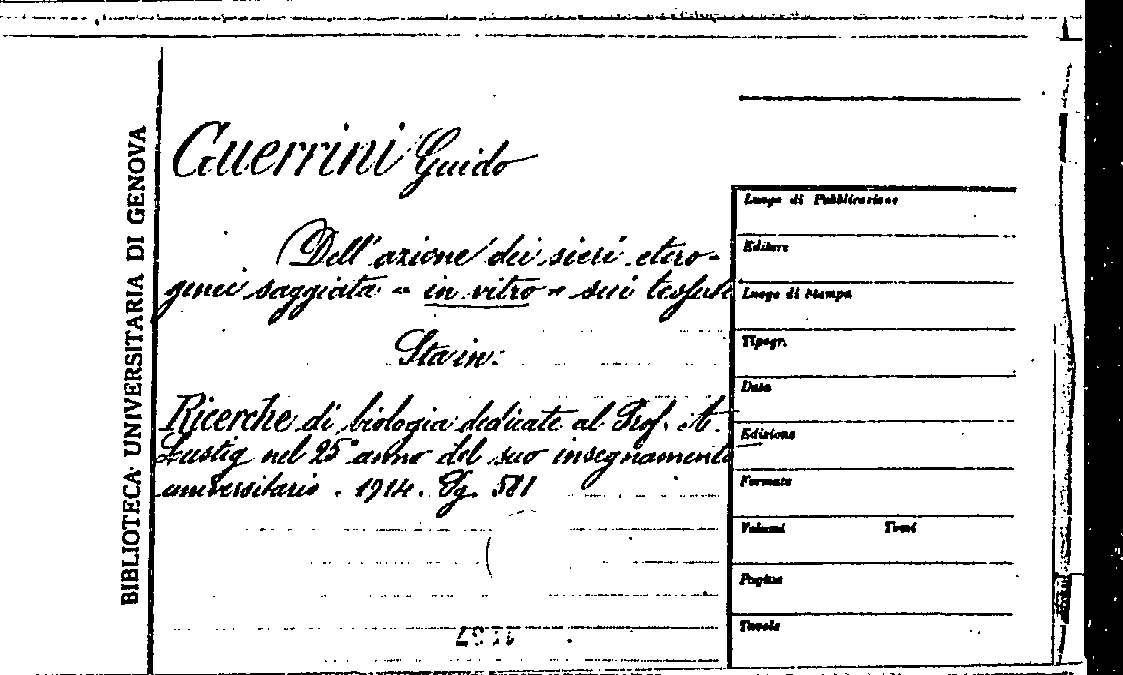 BIBLIOTECA UNIVERSITARIA DI GENOVA
Guerrini Guido
Dell'azione dei sieri etero-
genei saggiata - in vitro - sui tessuti
Sta in:
Ricerche di biologia dedicate al Prof. A.
Lustig nel 25° anno del suo insegnamento
universitario. 1914. Pg. 581
Luogo di Pubblicazione
Editore
Luogo di Stampa
Tipogr.
Data
Edizione
Formato
Volumi Tomi
Pagine
Tavole